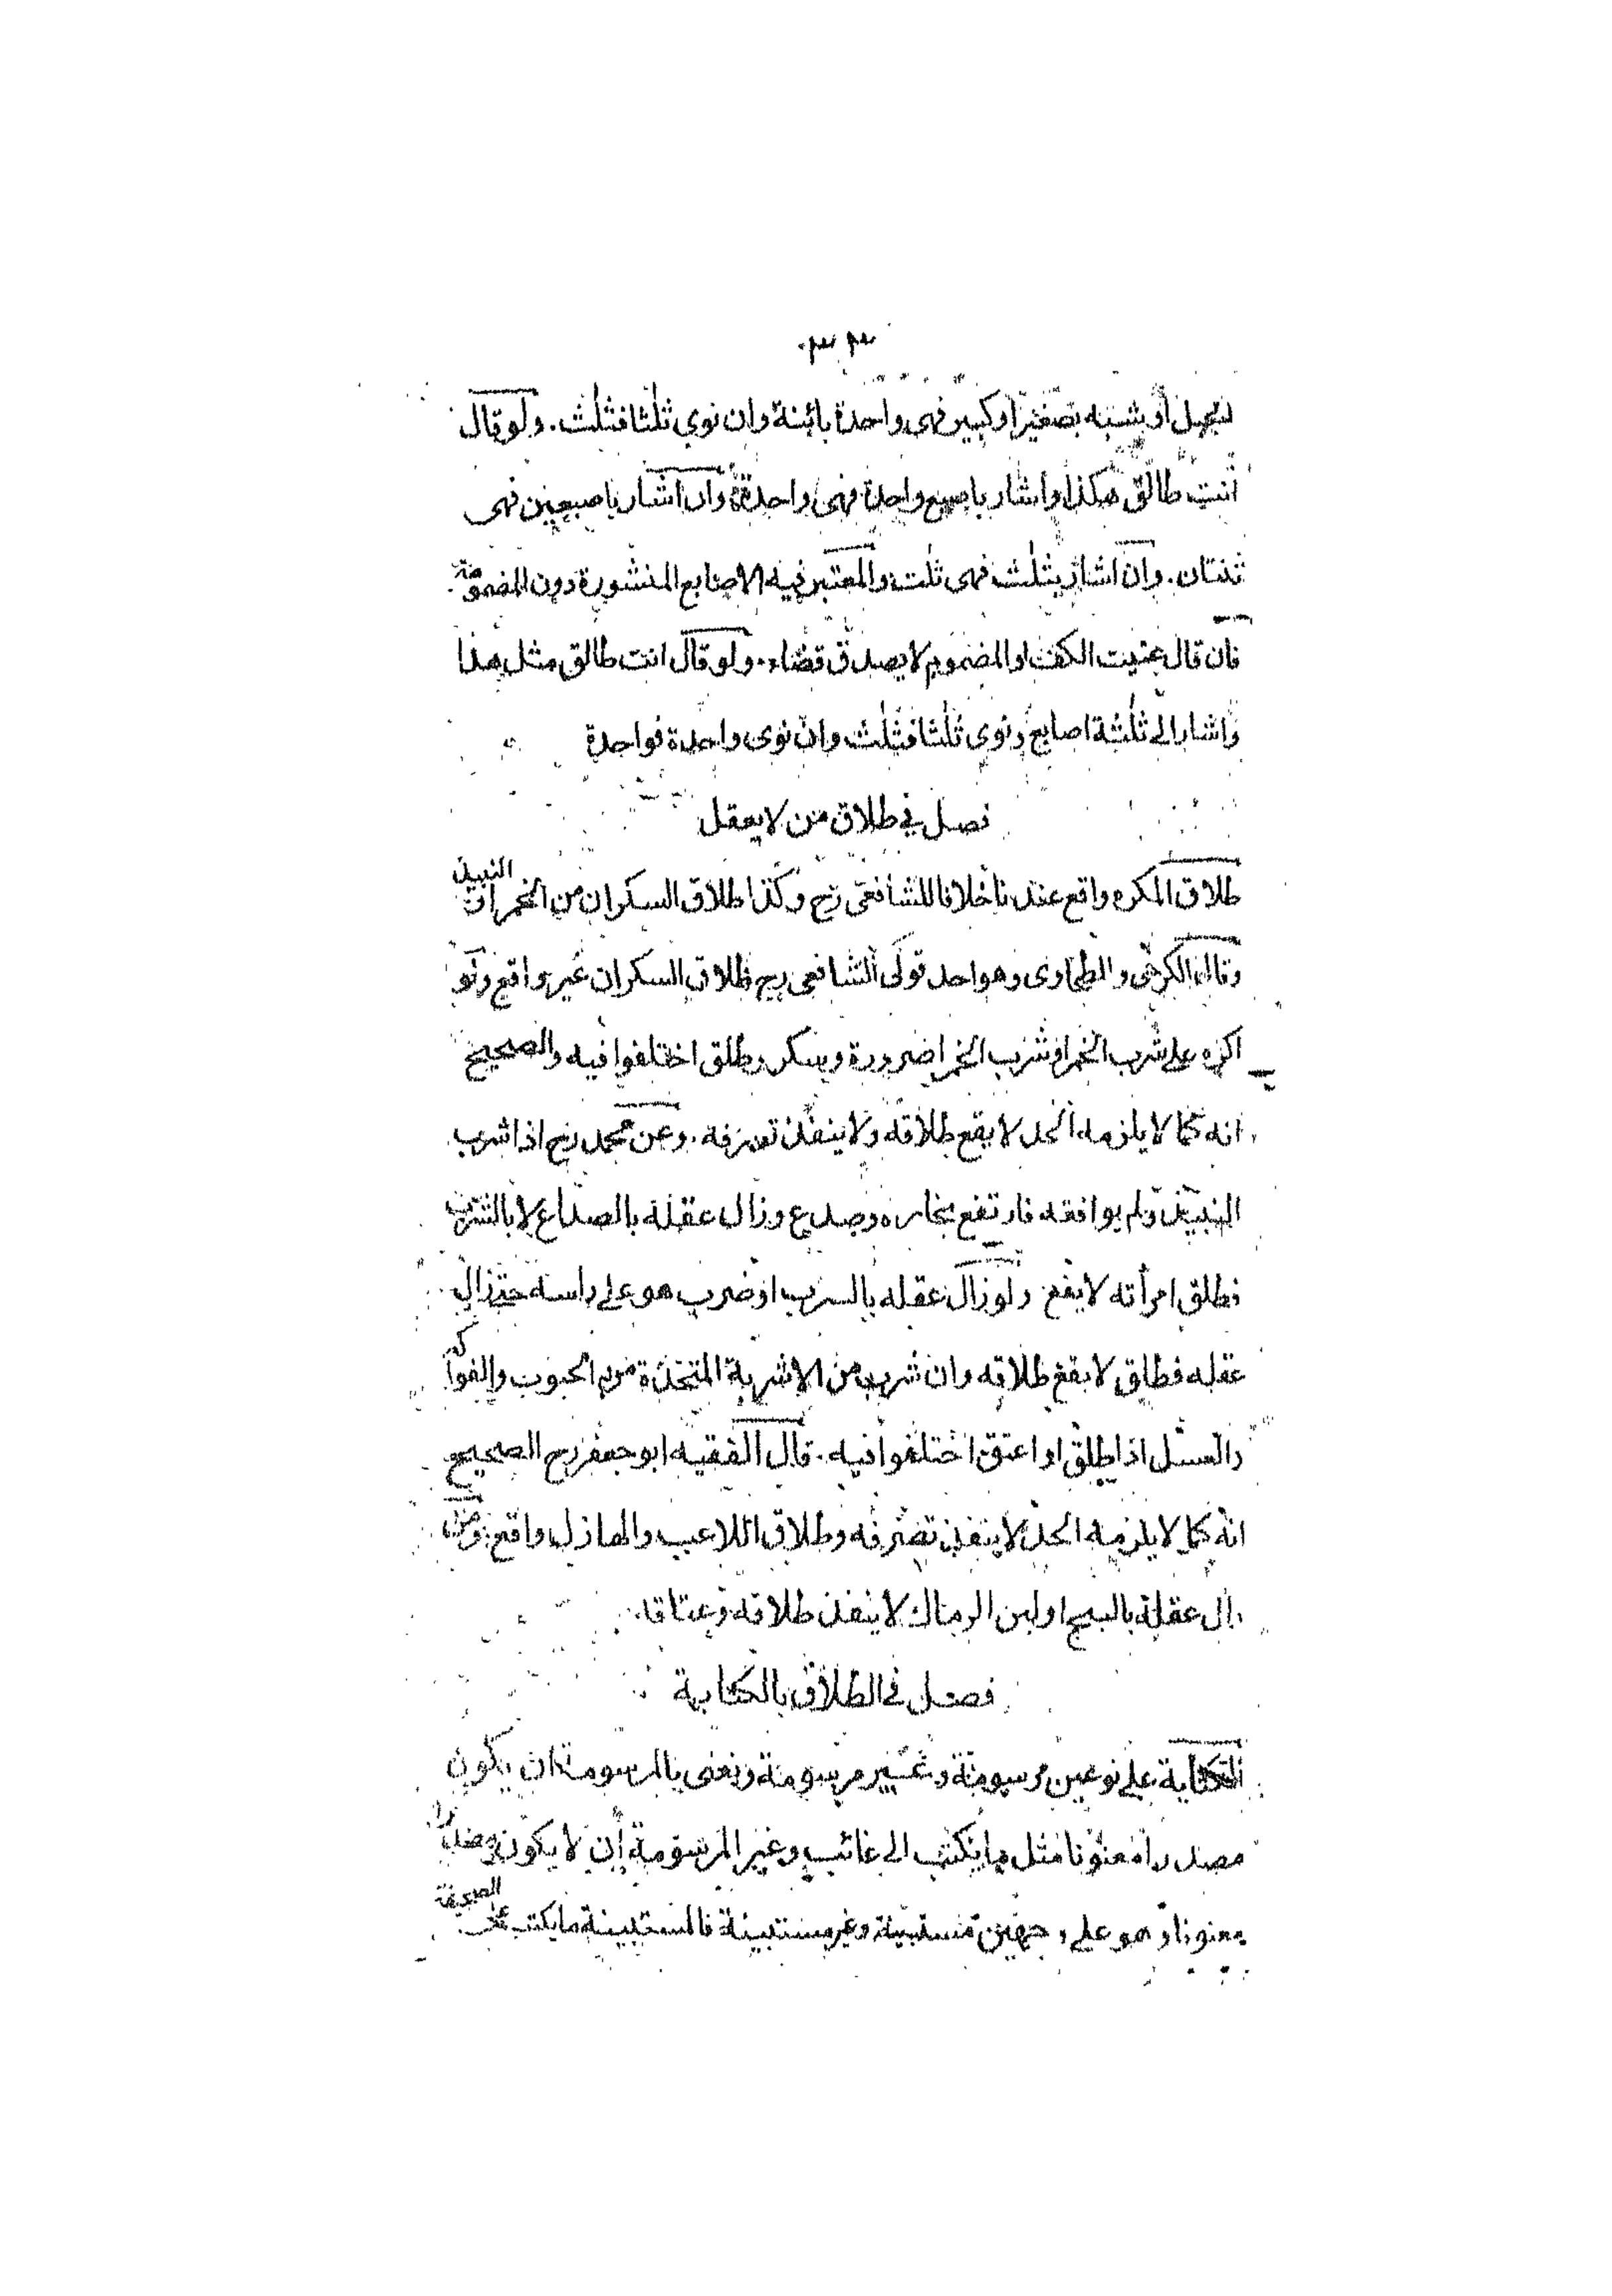 ٣٣
او شبه بصغير او كبير فهي واحدة بائنة وان نوى ثلثا فثلث. ولو قال
انت طالق هكذا واشار باصبع واحدة فهي واحدة وان اشار باصبعين فهى
ثنتان. وان اشار بثلث فهى ثلث والمعتبر فيه الاصابع المنشورة دون المضمومة
فان قال عنيت الكف او المضموم لا يصدق قضاء. ولو قال انت طالق مثل هذا
واشار الى ثلثة اصابع ونوى ثلثا فثلث وان نوى واحدة فواحدة
فصل في طلاق من لا يعقل
طلاق المكره واقع عندنا خلافا للشافعى رح وكذا طلاق السكران من الخمر او النبيذ
وقال الكرخى والطحاوى وهو احد قولى الشافعى رح طلاق السكران غير واقع ولو
اكره على شرب الخمر او شرب الخمر لضرورة وسكر وطلق اختلفوا فيه والصحيح
انه كما لا يلزمه الحد لا يقع طلاقه ولا ينفذ تصرفه. وعن محمد رح اذا شرب
النبيذ ولم يوافقه فارتفع بخاره وصدع وزال عقله بالصداع لا بالشرب
فطلق امرأته لا يقع ولو زال عقله بالشرب او ضرب هو على راسه حتى زال
عقله فطلق لا يقع طلاقه وان شرب من الاشربة المتخذة من الحبوب والفواكه
والعسل اذا طلق او اعتق اختلفوا فيه. قال الفقيه ابو جعفر رح الصحيح
انه كما لا يلزمه الحد لا ينفذ تصرفه وطلاق اللاعب والهازل واقع ومن
زال عقله بالبنج او لبن الرماك لا ينفذ طلاقه وعتاقه.
فصل في الطلاق بالكتابة
الكتابة على نوعين مرسومة وغير مرسومة ونعنى بالمرسومة ان يكون
مصدرا معنونا مثل ما يكتب الى غائب وغير المرسومة ان لا يكون مصدرا
معنونا وهو على وجهين مستبينة وغير مستبينة فالمستبينة ما يكتب على الصحيفة